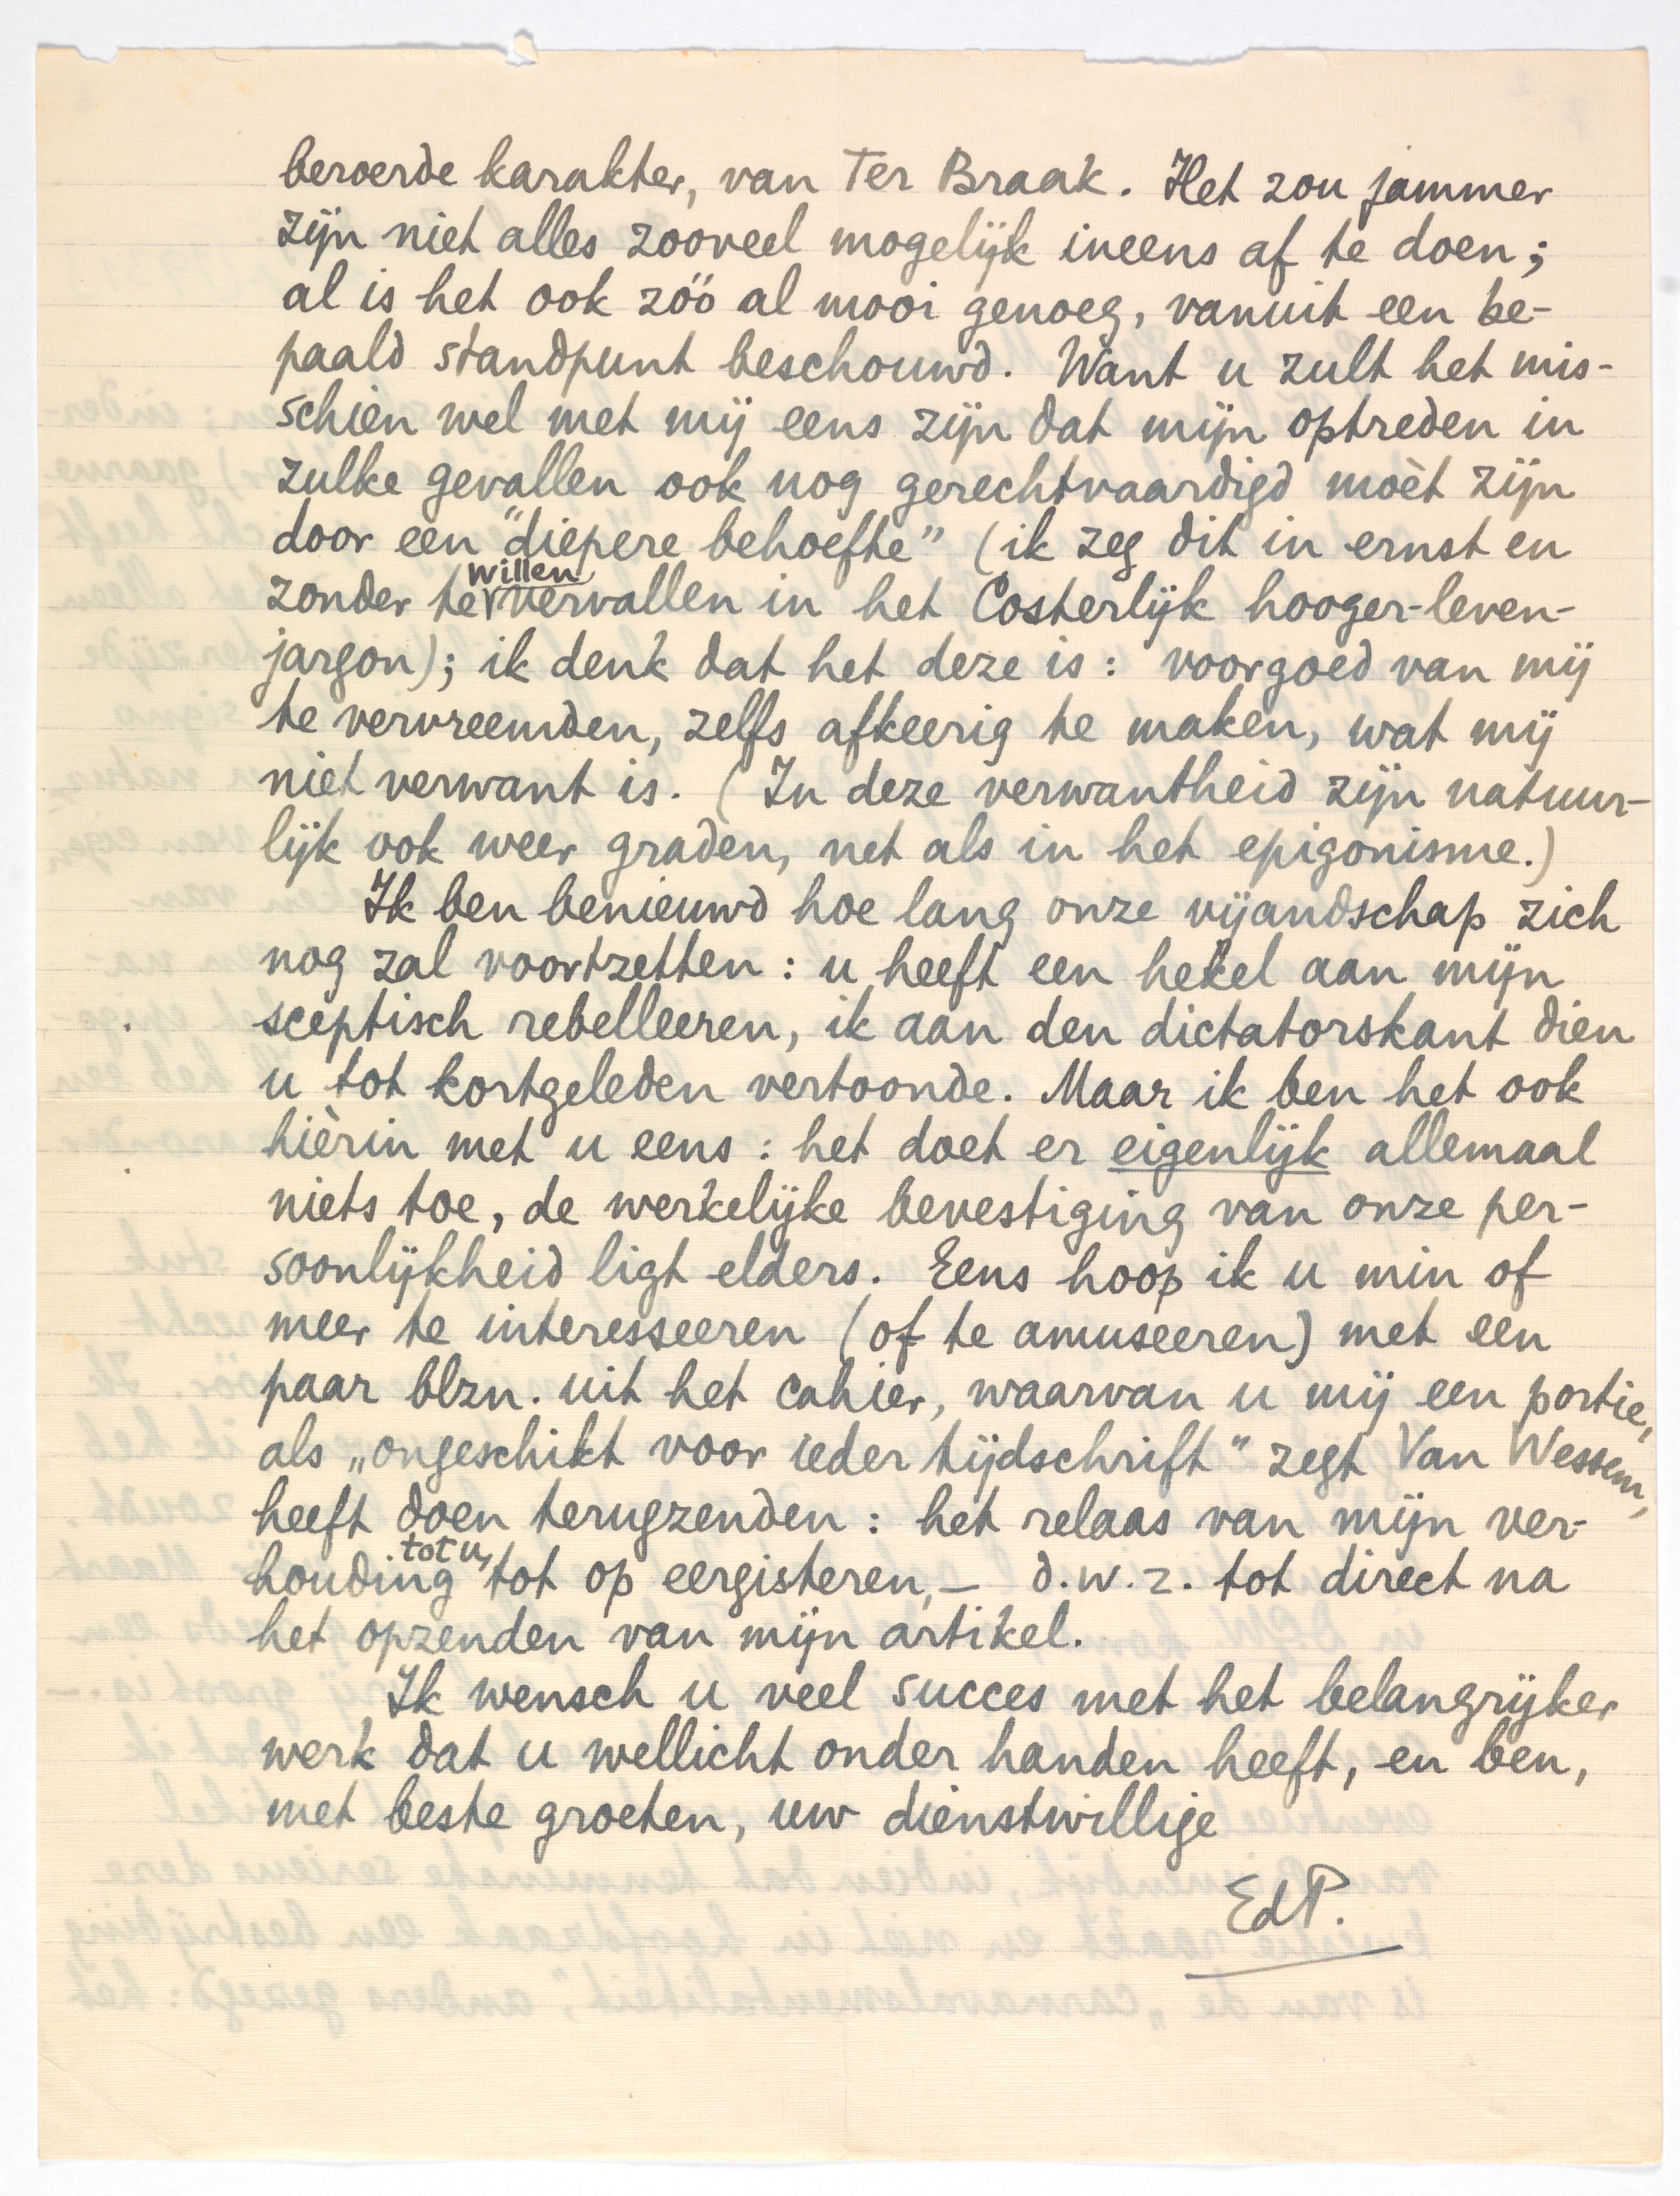 beroerde karakter, van Ter Braak. Het zou jammer
zijn niet alles zooveel mogelijk ineens af te doen;
al is het ook zóó al mooi genoeg, vanuit een be-
paald standpunt beschouwd. Want u zult het mis-
schien wel met mij eens zijn dat mijn optreden in
zulke gevallen ook nog gerechtvaardigd moèt zijn
door een "diepere behoefte" (ik zeg dit in ernst en
zonder te willen vervallen in het Costerlijk hooger-leven-
jargon); ik denk dat het deze is: voorgoed van mij
te vervreemden, zelfs afkeerig te maken, wat mij
niet verwant is. (In deze verwantheid zijn natuur-
lijk ook weer graden, net als in het epigonisme.)
Ik ben benieuwd hoe lang onze vijandschap zich
nog zal voortzetten: u heeft een hekel aan mijn
sceptisch rebelleeren, ik aan den dictatorskant dien
u tot kortgeleden vertoonde. Maar ik ben het ook
hièrin met u eens: het doet er eigenlijk allemaal
niets toe, de werkelijke bevestiging van onze per-
soonlijkheid ligt elders. Eens hoop ik u min of
meer te interesseeren (of te amuseeren) met een
paar blzn. uit het cahier, waarvan u mij een portie,
als „ongeschikt voor ieder tijdschrift" zegt Van Wessem,
heeft doen terugzenden: het relaas van mijn ver-
houding tot u, tot op eergisteren, – d.w.z. tot direct na
het opzenden van mijn artikel.
Ik wensch u veel succes met het belangrijker
werk dat u wellicht onder handen heeft, en ben,
met beste groeten, uw dienstwillige
EdP.